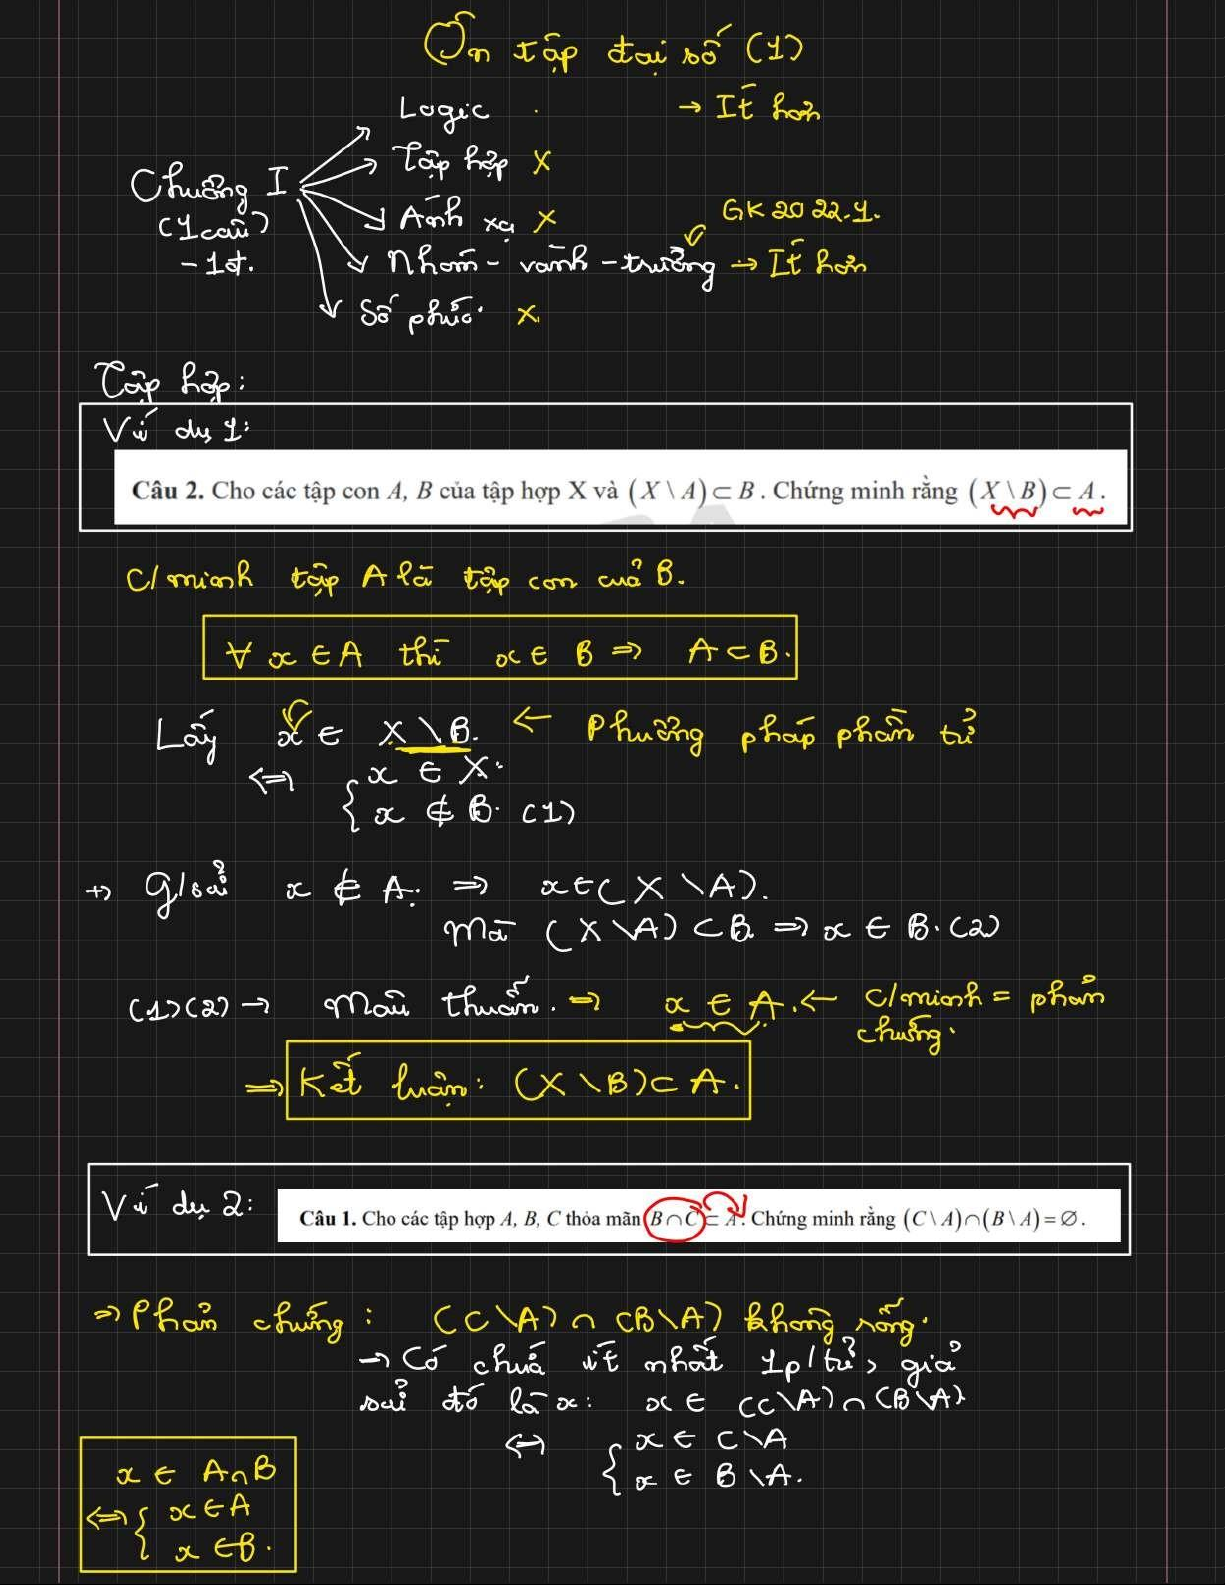 Ôn tập đại số (1)
Logic → Ít hơn
Chương I
(1 câu)
- 1đ.
Tập hợp X
Ánh xạ X
GK 2022.1.
Nhóm - vành - trường → Ít hơn
Số phức. X
Tập hợp:
Ví dụ 1:
Câu 2. Cho các tập con A, B của tập hợp X và (X \ A) ⊂ B. Chứng minh rằng (X \ B) ⊂ A.
C/minh tập A là tập con của B.
∀ x ∈ A thì x ∈ B ⇒ A ⊂ B.
Lấy x ∈ X \ B. ← Phương pháp phần tử
⇔ { x ∈ X.
x ∉ B. (1)
+) G/sử x ∉ A. ⇒ x ∈ (X \ A).
Mà (X \ A) ⊂ B ⇒ x ∈ B. (2)
(1)(2) → Mâu thuẫn. ⇒ x ∈ A. ← C/minh = phản
chứng.
⇒ Kết luận: (X \ B) ⊂ A.
Ví dụ 2:
Câu 1. Cho các tập hợp A, B, C thỏa mãn B ∩ C ⊂ A. Chứng minh rằng (C \ A) ∩ (B \ A) = ∅.
⇒ Phản chứng: (C \ A) ∩ (B \ A) không rỗng.
→ Có chứa ít nhất 1 p/tử, giả
sử đó là x: x ∈ (C \ A) ∩ (B \ A)
⇔ { x ∈ C \ A
x ∈ B \ A.
x ∈ A ∩ B
⇔ { x ∈ A
x ∈ B.